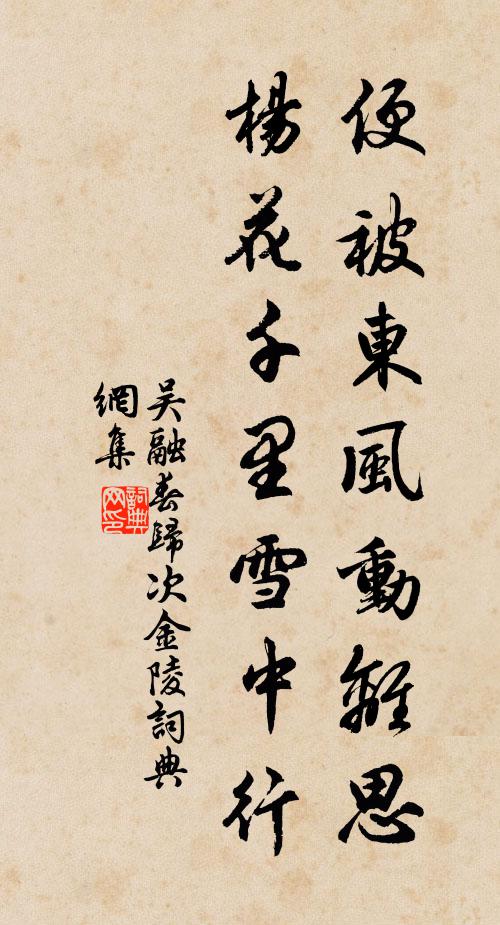 便被東風動離思
楊花千里雪中行
吴融春歸次金陵詞典
網集
詞典
网印